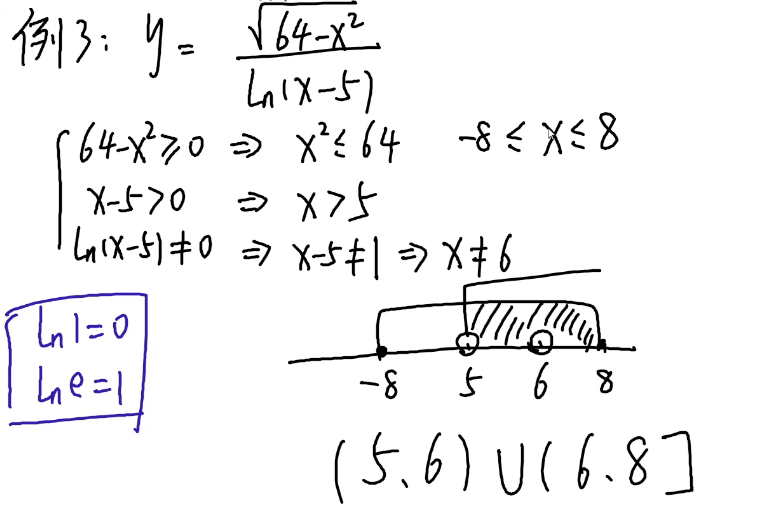 例3: y = √(64-x²) / ln(x-5)
64-x²≥0 ⇒ x²≤64 -8≤x≤8
x-5>0 ⇒ x>5
ln(x-5)≠0 ⇒ x-5≠1 ⇒ x≠6
ln1=0
lne=1
-8 5 6 8
(5.6)∪(6.8]